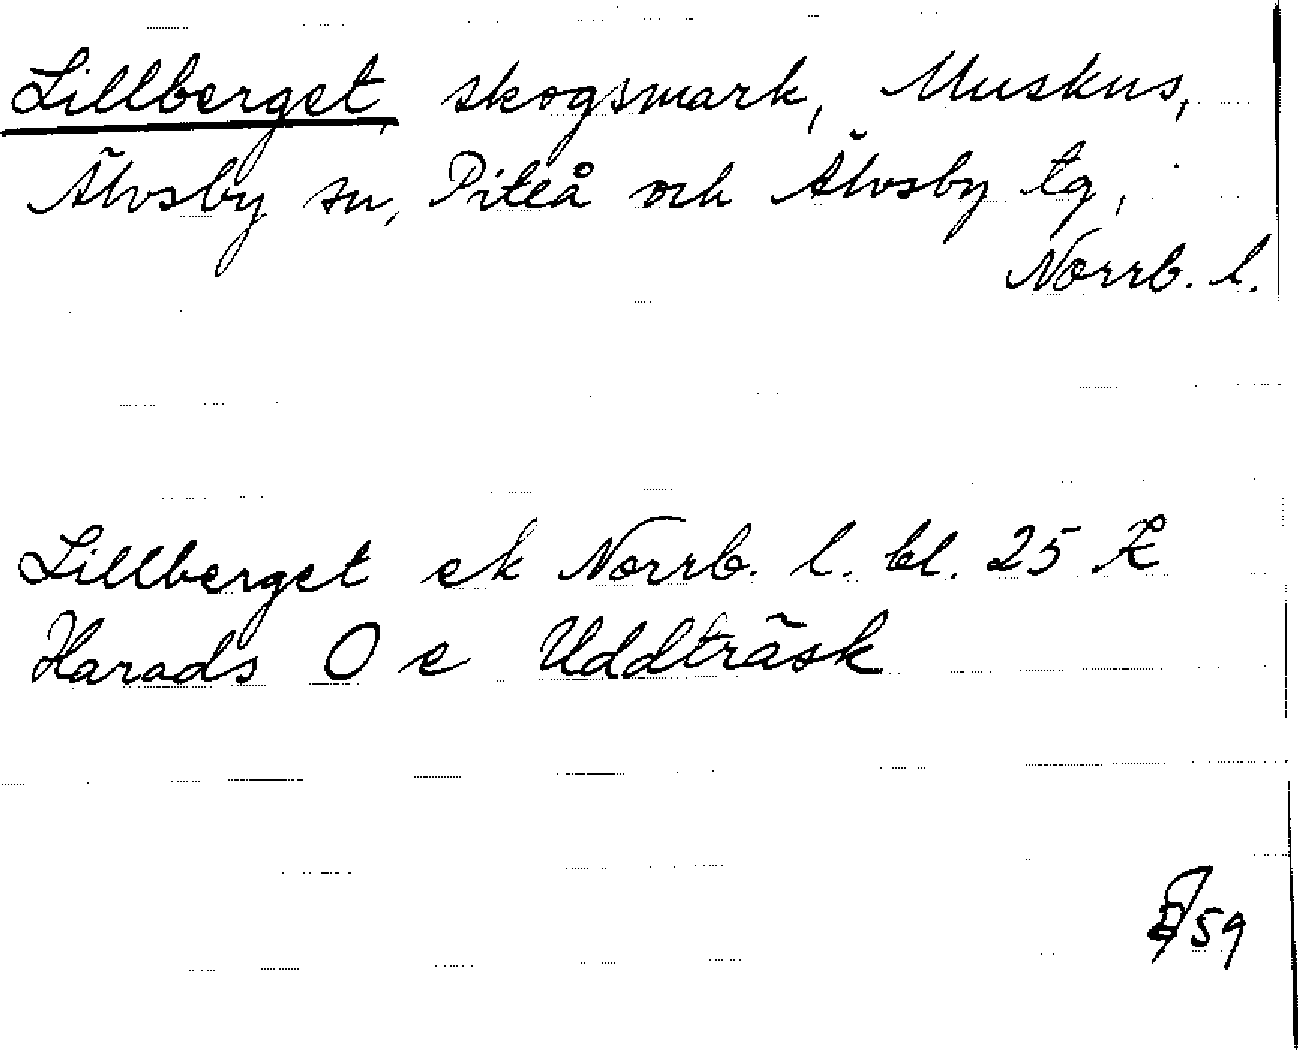 Lillberget, skogsmark, Muskus,
Älvsby sn, Piteå och Älvsby tg,
Norrb. l.
Lillberget ek Norrb. l. bl. 25
Harads O e Uddträsk
59